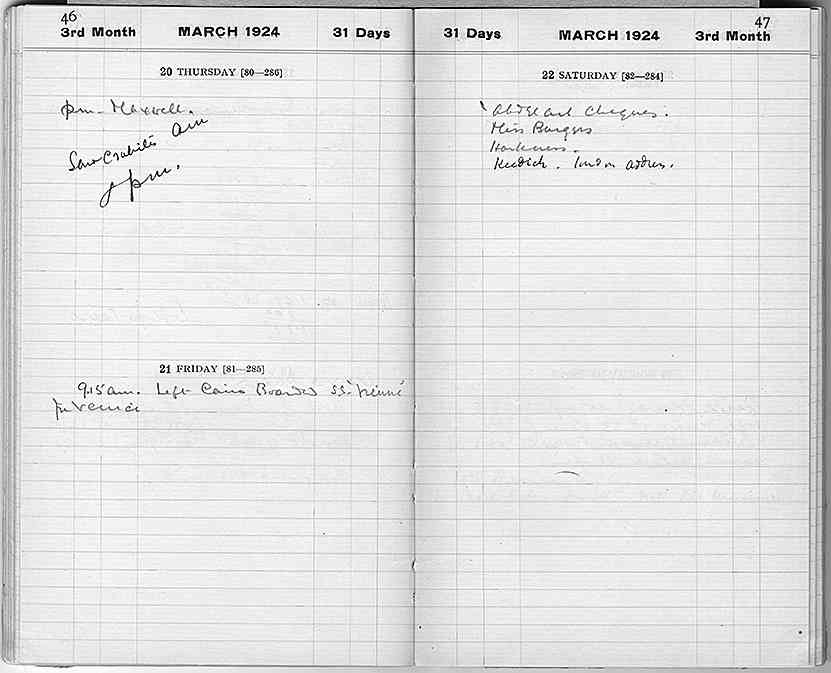 46
3rd Month MARCH 1924 31 Days
20 THURSDAY [80—286]
pm - Maxwell.
Saw Crabites am
& pm.
21 FRIDAY [81—285]
9.15 am. Left Cairo Boarded SS. "Vienna"
for Venice
47
31 Days MARCH 1924 3rd Month
22 SATURDAY [82—284]
Cheques.
Miss Burges
Harkness.
Keedick. London address.